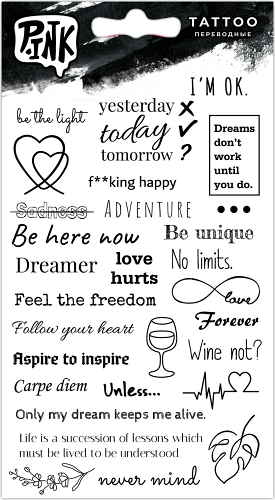 PINK
TATTOO
ПЕРЕВОДНЫЕ
I'M OK.
be the light
yesterday
today
tomorrow ?
Dreams
don't
work
until
you do.
f**king happy
Sadness
ADVENTURE
Be here now
Be unique
Dreamer
love
hurts
No limits.
Feel the freedom
love
Forever
Follow your heart
Wine not?
Aspire to inspire
Carpe diem
Unless...
Only my dream keeps me alive.
Life is a succession of lessons which
must be lived to be understood
never mind